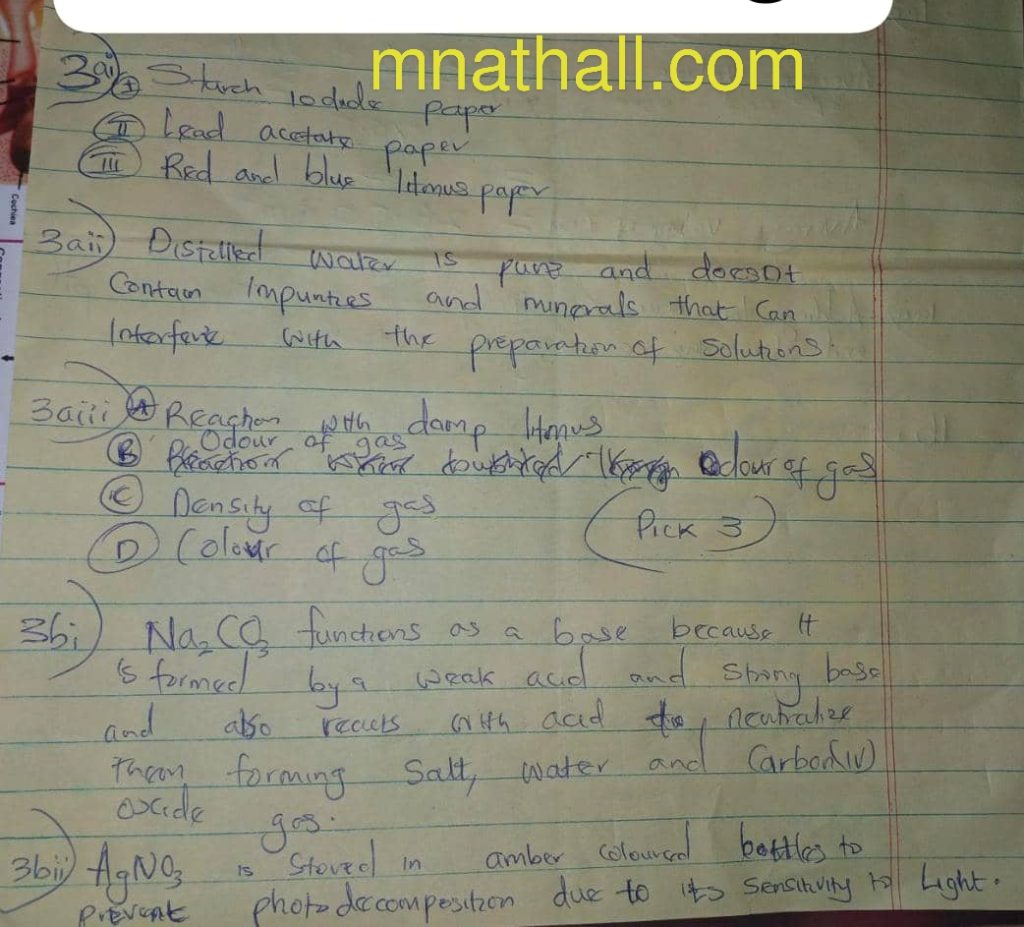 mnathall.com
3ai) I Starch iodide paper
II Lead acetate paper
III Red and blue litmus paper
3aii) Distilled water is pure and doesnt
Contain impurities and minerals that can
Interfere with the preparation of solutions.
3aiii) A Reaction with damp litmus
Odour of gas
B Odour of gas
C Density of gas
(Pick 3)
D Colour of gas
3bi) Na₂CO₃ functions as a base because it
is formed by a weak acid and strong base
and also reacts with acid to, neutralize
them forming Salt, water and Carbon(IV)
oxide gas.
3bii) AgNO₃ is stored in amber coloured bottles to
prevent photodecomposition due to its sensitivity to light.